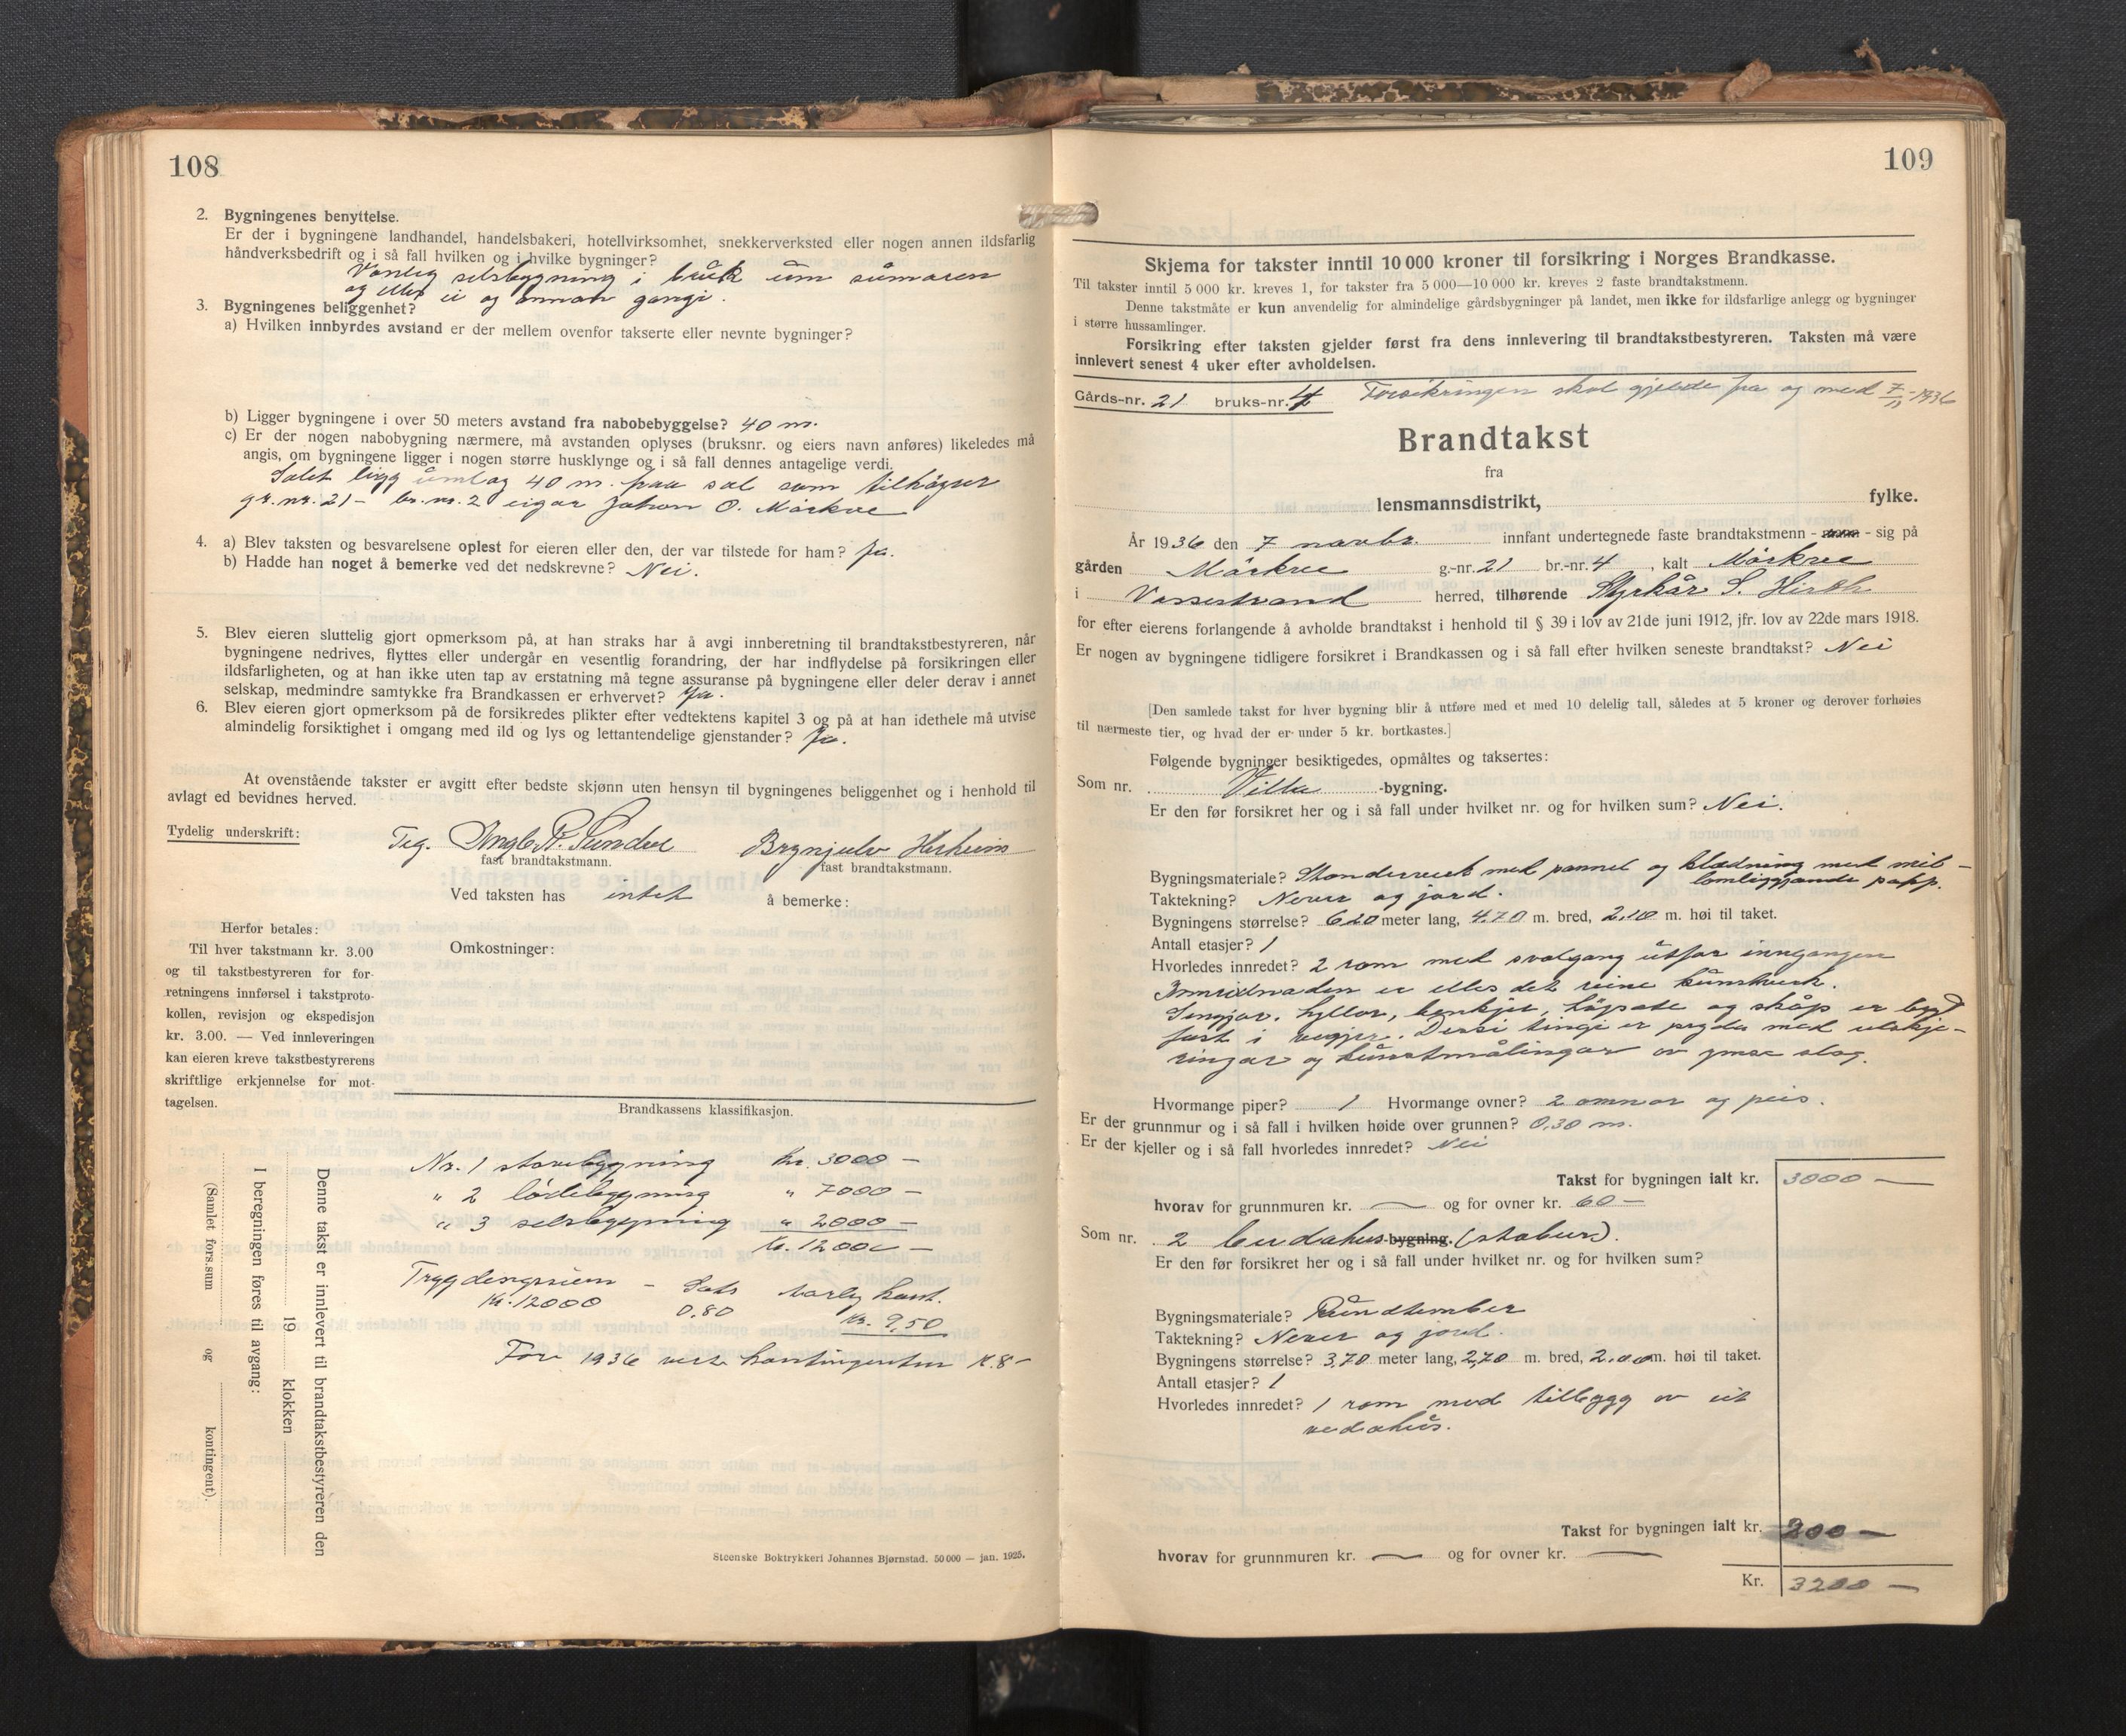 108
2. Bygningenes benyttelse.
Er der i bygningene landhandel, handelsbakeri, hotellvirksomhet, snekkerverksted eller nogen annen ildsfarlig
håndverksbedrift og i så fall hvilken og i hvilke bygninger?
Vanleg selsbygning i bruk um sumaren
og elles ei og annan gangi.
3. Bygningenes beliggenhet?
a) Hvilken innbyrdes avstand er der mellem ovenfor takserte eller nevnte bygninger?
b) Ligger bygningene i over 50 meters avstand fra nabobebyggelse? 40 m.
c) Er der nogen nabobygning nærmere, må avstanden oplyses (bruksnr. og eiers navn anføres) likeledes må
angis, om bygningene ligger i nogen større husklynge og i så fall dennes antagelige verdi.
Selet ligg umlag 40 m. fraa sel som tilhøyrer
gr. nr. 21 - br. nr. 2 eigar Johan O. Mørkve
4. a) Blev taksten og besvarelsene oplest for eieren eller den, der var tilstede for ham? Ja.
b) Hadde han noget å bemerke ved det nedskrevne? Nei.
5. Blev eieren sluttelig gjort opmerksom på, at han straks har å avgi innberetning til brandtakstbestyreren, når
bygningene nedrives, flyttes eller undergår en vesentlig forandring, der har indflydelse på forsikringen eller
ildsfarligheten, og at han ikke uten tap av erstatning må tegne assuranse på bygningene eller deler derav i annet
selskap, medmindre samtykke fra Brandkassen er erhvervet? Ja.
6. Blev eieren gjort opmerksom på de forsikredes plikter efter vedtektens kapitel 3 og på at han idethele må utvise
almindelig forsiktighet i omgang med ild og lys og lettantendelige gjenstander? Ja.
At ovenstående takster er avgitt efter bedste skjønn uten hensyn til bygningenes beliggenhet og i henhold til
avlagt ed bevidnes herved.
Tydelig underskrift:
Brynjulv Herheim
fast brandtakstmann.
fast brandtakstmann.
Ved taksten has intet å bemerke:
Herfor betales:
Til hver takstmann kr. 3.00
og til takstbestyreren for for-
retningens innførsel i takstproto-
kollen, revisjon og ekspedisjon
kr. 3.00. — Ved innleveringen
kan eieren kreve takstbestyrerens
skriftlige erkjennelse for mot-
tagelsen.
Omkostninger:
Brandkassens klassifikasjon.
Nr. 1 stovebygning Kr. 3000 -
" 2 lødebygning " 7000 -
" 3 selsbygning " 2000 -
Kr. 12000 -
Trygdesum - Sats aarleg kont.
Kr. 12000 0.80 Kr. 9.50
For 1936 vert kontingenten K. 8 -
Denne takst er innlevert til brandtakstbestyreren den
19 klokken
I beregningen føres til avgang:
(Samlet fors.sum og kontingent).
Steenske Boktrykkeri Johannes Bjørnstad. 50 000 — jan. 1925.
109
Skjema for takster inntil 10 000 kroner til forsikring i Norges Brandkasse.
Til takster inntil 5 000 kr. kreves 1, for takster fra 5 000—10 000 kr. kreves 2 faste brandtakstmenn.
Denne takstmåte er kun anvendelig for almindelige gårdsbygninger på landet, men ikke for ildsfarlige anlegg og bygninger
i større hussamlinger.
Forsikring efter taksten gjelder først fra dens innlevering til brandtakstbestyreren. Taksten må være
innlevert senest 4 uker efter avholdelsen.
Gårds-nr. 21 bruks-nr. 4 Forsikringen skal gjelde fra og med 7/11-1936
Brandtakst
fra
lensmannsdistrikt, fylke.
År 1936 den 7 novbr. innfant undertegnede faste brandtakstmenn - sig på
gården Mørkve g.-nr. 21 br.-nr. 4, kalt Mørkve
i Vossestrand herred, tilhørende Styrkår S. Hirth
for efter eierens forlangende å avholde brandtakst i henhold til § 39 i lov av 21de juni 1912, jfr. lov av 22de mars 1918.
Er nogen av bygningene tidligere forsikret i Brandkassen og i så fall efter hvilken seneste brandtakst? Nei
[Den samlede takst for hver bygning blir å utføre med et med 10 delelig tall, således at 5 kroner og derover forhøies
til nærmeste tier, og hvad der er under 5 kr. bortkastes.]
Følgende bygninger besiktigedes, opmåltes og taksertes:
Som nr. Villa -bygning.
Er den før forsikret her og i så fall under hvilket nr. og for hvilken sum? Nei.
Bygningsmateriale? Standerverk med pannel og klædning med mil-
lomliggjande papp.
Taktekning? Never og jord.
Bygningens størrelse? 6.20 meter lang, 4.70 m. bred, 2.10 m. høi til taket.
Antall etasjer? 1
Hvorledes innredet? 2 rom med svalgang utfor inngangen
Innreidnaden er elles det reine kunstverk.
Sengjar, hyllor, benkjer, høgsete og skåp er bygd
fast i vegjer. Desse tingi er prydde med utskje-
ringar og kunstmålingar av ymse slag.
Hvormange piper? 1 Hvormange ovner? 2 omnar og peis.
Er der grunnmur og i så fall i hvilken høide over grunnen? 0,30 m.
Er der kjeller og i så fall hvorledes innredet? Nei
Takst for bygningen ialt kr. 3000 —
hvorav for grunnmuren kr. — og for ovner kr. 60 —
Som nr. 2 budahus-bygning. (stabur).
Er den før forsikret her og i så fall under hvilket nr. og for hvilken sum?
Bygningsmateriale? Rundtember
Taktekning? Never og jord.
Bygningens størrelse? 3,70 meter lang, 2,70 m. bred, 2.00 m. høi til taket.
Antall etasjer? 1
Hvorledes innredet? 1 rom med tilbygg av eit
vedahus.
Takst for bygningen ialt kr. 200 —
hvorav for grunnmuren kr. — og for ovner kr. —
Kr. 3200 —